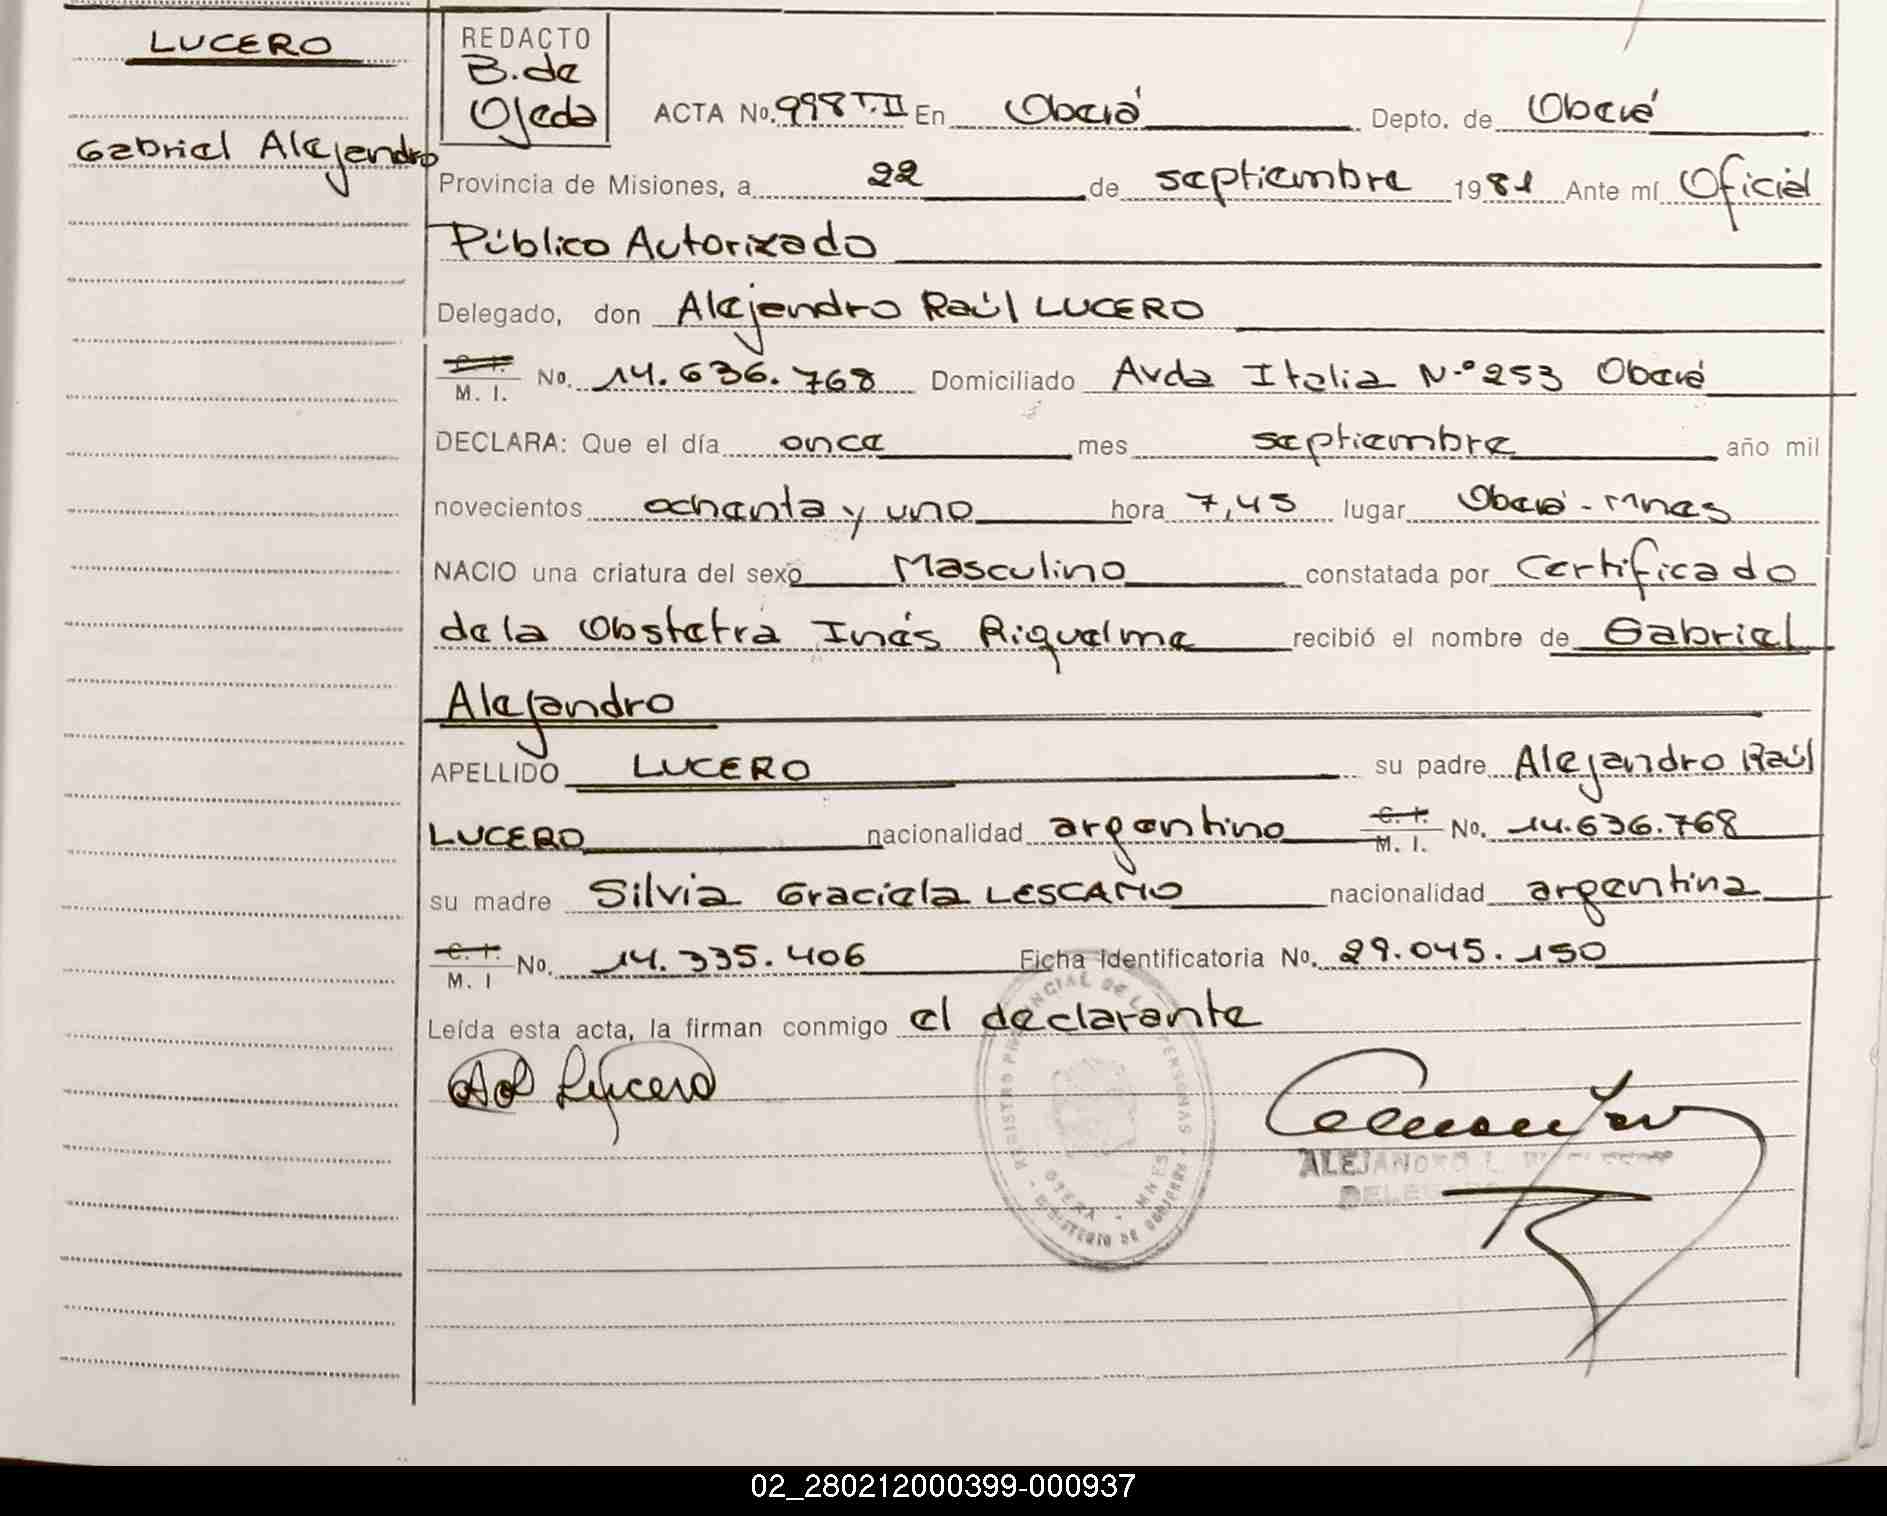 LUCERO
Gabriel Alejandro
REDACTO
B. de
Ojeda
ACTA No. 998 T. II En Oberá Depto. de Oberá
Provincia de Misiones, a 22 de septiembre 1981 Ante mí Oficial
Público Autorizado
Delegado, don Alejandro Raúl LUCERO
C. I. M. I. No. 14.636.768 Domiciliado Avda Italia N.º 253 Oberá
DECLARA: Que el día once mes septiembre año mil
novecientos ochenta y uno hora 7,45 lugar Oberá - Mnes
NACIO una criatura del sexo Masculino constatada por Certificado
de la Obstetra Inés Riquelme recibió el nombre de Gabriel
Alejandro
APELLIDO LUCERO su padre Alejandro Raúl
LUCERO nacionalidad argentino C. I. M. I. No. 14.636.768
su madre Silvia Graciela LESCANO nacionalidad argentina
C. I. M. I No. 14.335.406 Ficha Identificatoria No. 29.045.150
Leída esta acta, la firman conmigo el declarante
Lucero
REGISTRO PROVINCIAL DE LAS PERSONAS
OBERA - MNES
MINISTERIO DE GOBIERNO
ALEJANDRO L.
DELEGADO
02_280212000399-000937